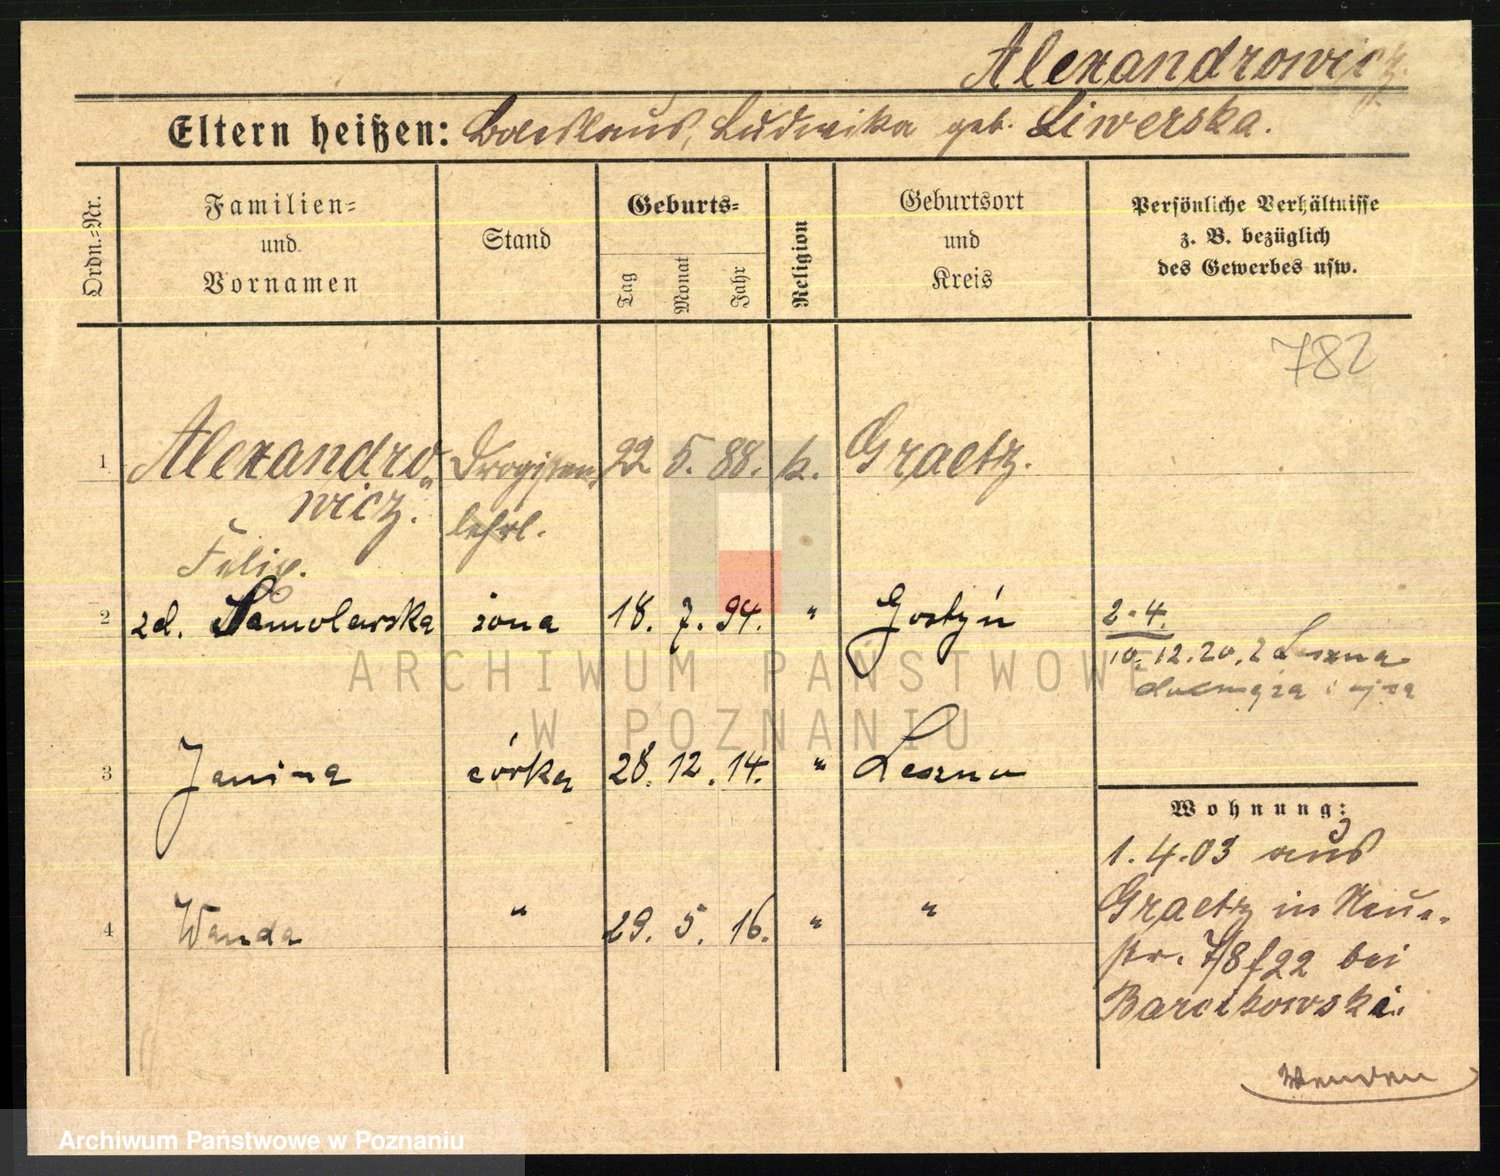 Alexandrowicz.
Eltern heißen: Boleslaus, Ludwika geb. Siwerska.
Ordn.=Nr.
Familien=
und
Vornamen
Stand
Geburts=
Tag
Monat
Jahr
Religion
Geburtsort
und
Kreis
Persönliche Verhältnisse
z. B. bezüglich
des Gewerbes usw.
782
1 Alexandro- Drogisten- 22 5. 88. k. Graetz.
wicz. lehrl.
Felix.
2 zd. Samolewska żona 18. 7. 94. " Gostyń 2-4.
10. 12. 20. z Leszna
do męża i ojca
3 Janina córka 28. 12. 14. " Leszno
Wohnung:
1. 4. 03 aus
Graetz in Neue-
str. 7/8 f 22 bei
Barcikowski.
4 Wanda " 29. 5. 16. " "
Wenden
ARCHIWUM PAŃSTWOWE
W POZNANIU
Archiwum Państwowe w Poznaniu